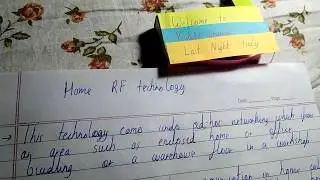 Welcome to
Last Night Study
Home RF technology
Date Page
→ This technology comes under ad-hoc networking which
an area such as enclosed home or office
building or a warehouse floor in a workshop
in home